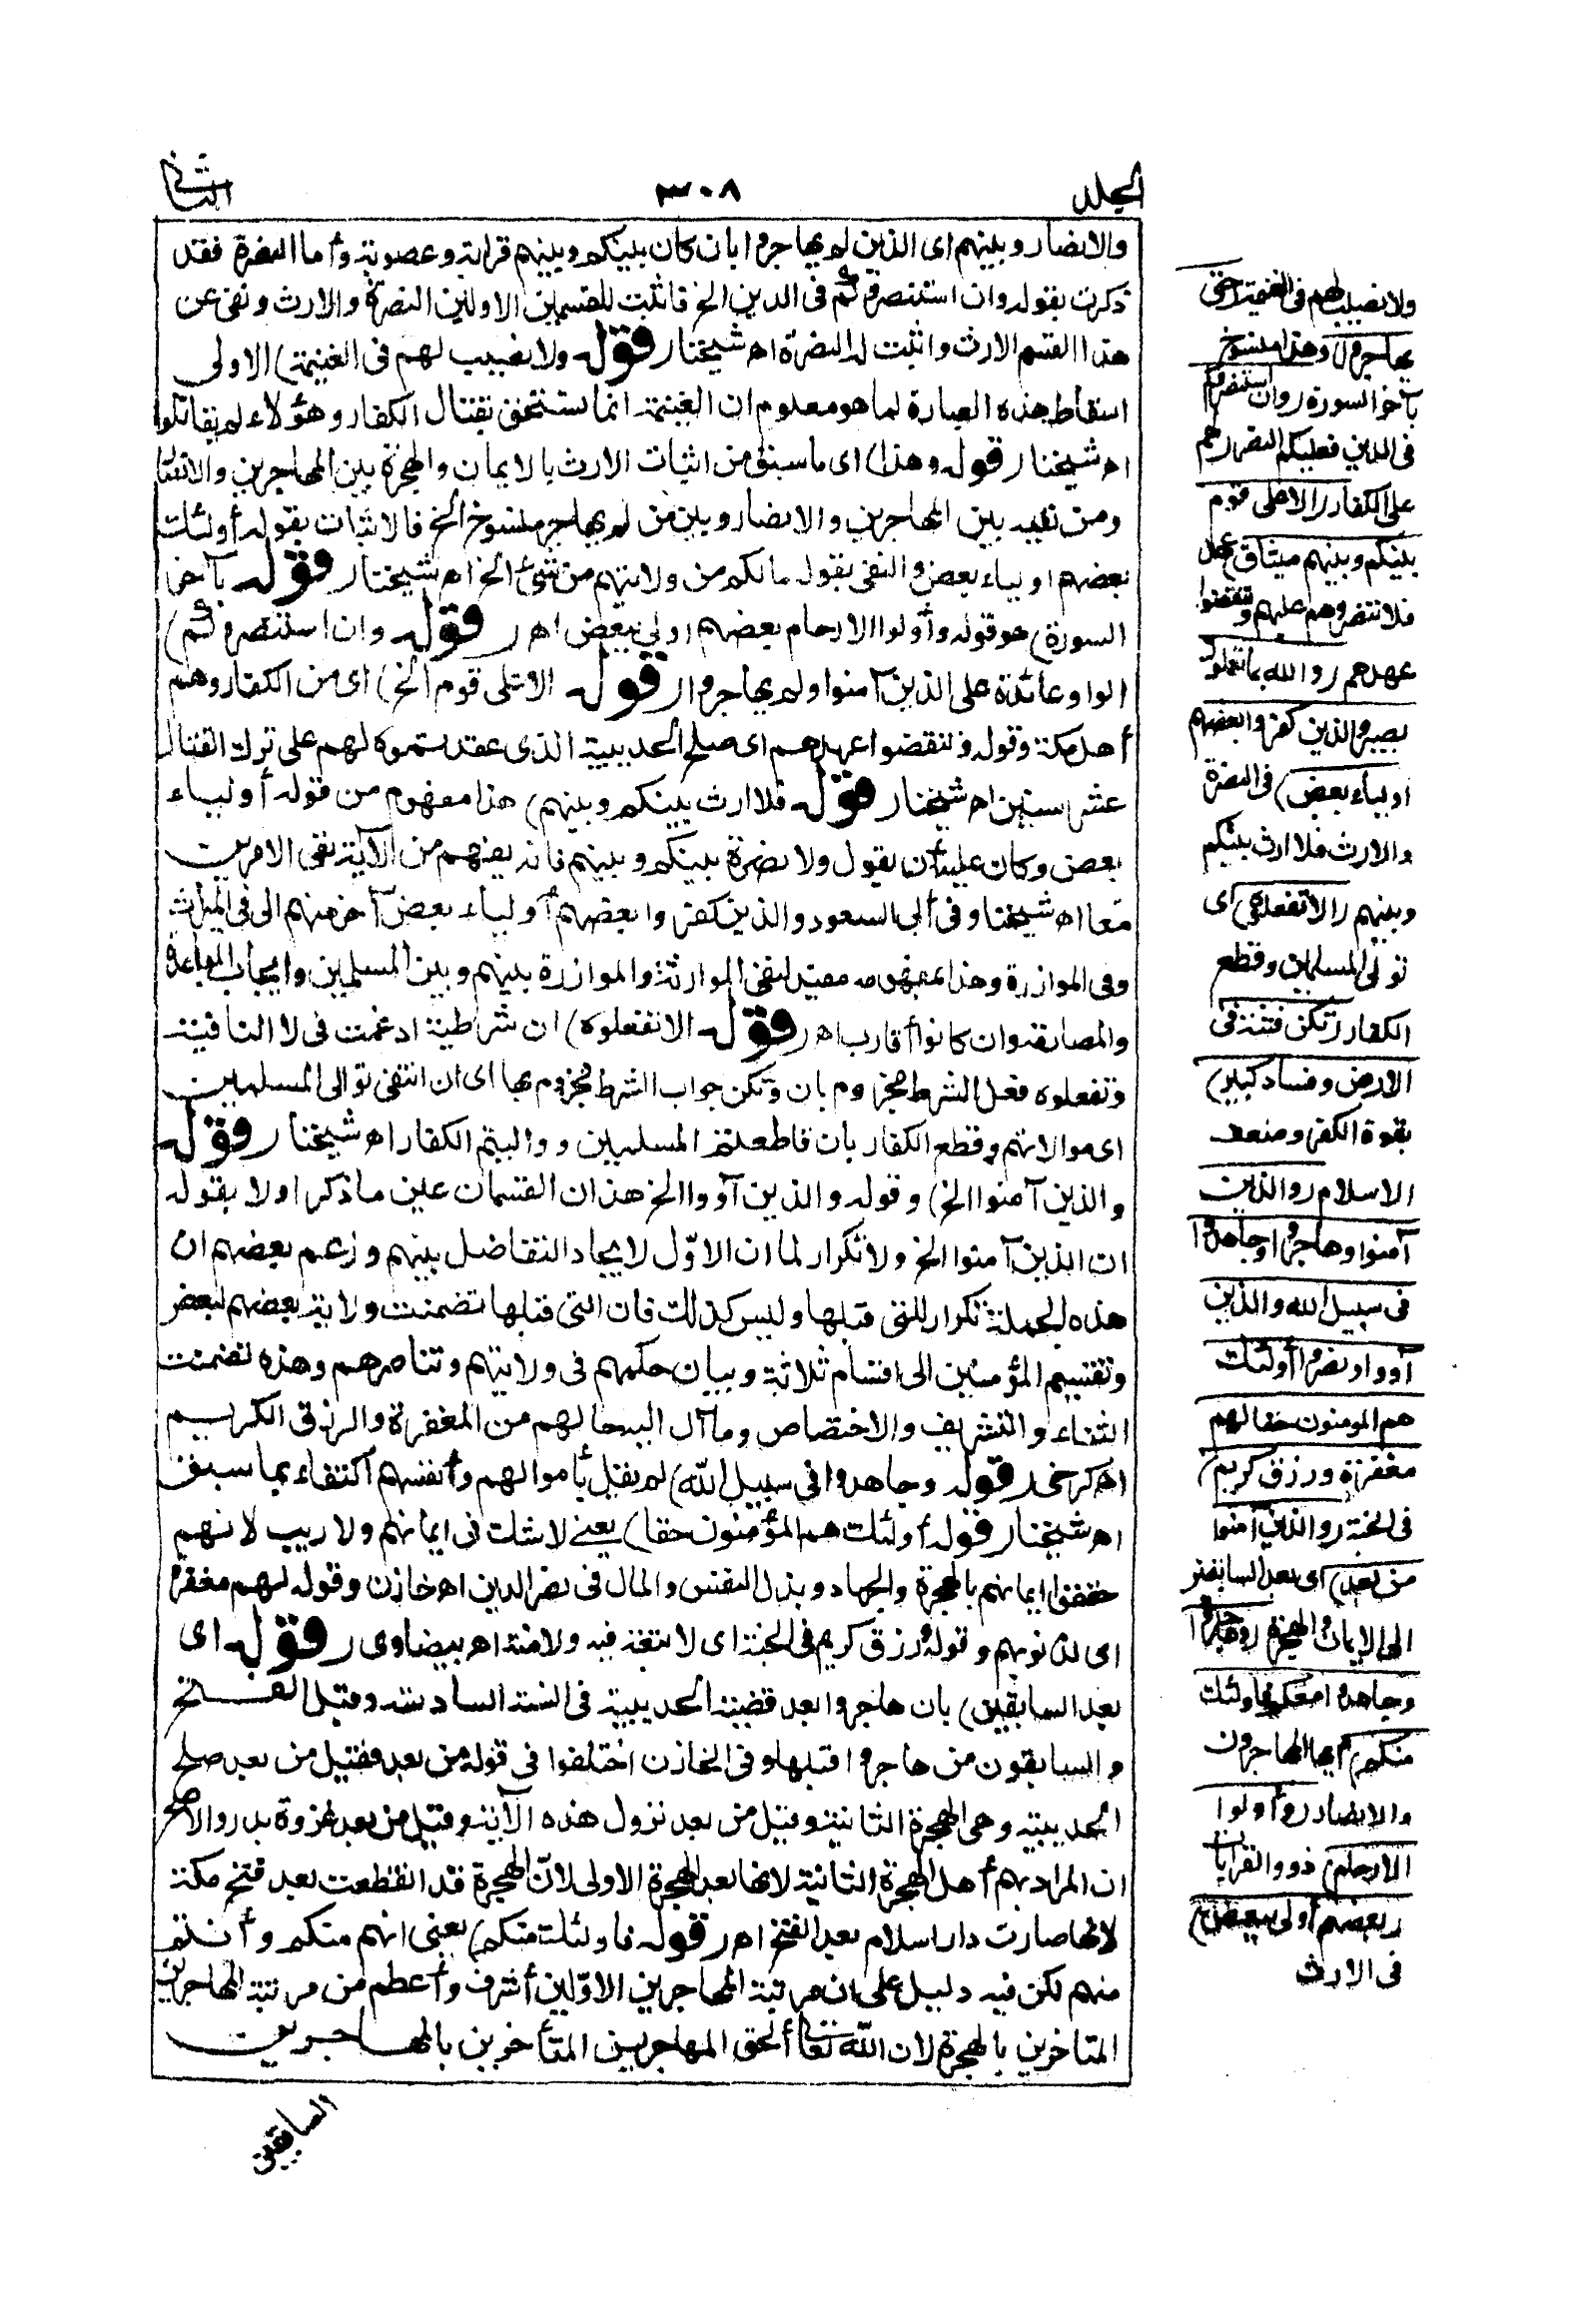 الجلد
٣٠٨
الثانى
والانصار وبينهم اى الذين لم يهاجروا بان كان بينكم وبينهم قرابة وعصوبة وأما النصرة فقد
ذكرت بقوله وان استنصروكم فى الدين الخ فاثبت للقسمين الاولين النصرة والارث ونفى عن
هذا القسم الارث واثبت له النصرة اه شيخنا (قوله ولا نصيب لهم فى الغنيمة) الاولى
اسقاط هذه العبارة لما هو معلوم ان الغنيمة انما تستحق بقتال الكفار وهؤلاء لم يقاتلوا
اه شيخنا (قوله وهذا) اى ما سبق من اثبات الارث بالايمان والهجرة بين المهاجرين والانصار
ومن نفيه بين المهاجرين والانصار وبين من لم يهاجر منسوخ الخ فالاثبات بقوله أولئك
بعضهم اولياء بعض والنفى بقوله مالكم من ولايتهم من شئ الخ اه شيخنا (قوله بآخر
السورة) هو قوله وأولوا الارحام بعضهم اولى ببعض اه (قوله وان استنصروكم)
الواو عائدة على الذين آمنوا ولم يهاجروا (قوله الا على قوم الخ) اى من الكفار وهم
أهل مكة وقوله وتنقضوا عهدهم اى صلح الحديبية الذى عقدتموه لهم على ترك القتال
عشر سنين اه شيخنا (قوله فلا ارث بينكم وبينهم) هذا مفهوم من قوله أولياء
بعض وكان عليه أن يقول ولا نصرة بينكم وبينهم فانه يفهم من الآية نفى الامرين
معا اه شيخنا وفى أبى السعود والذين كفروا بعضهم أولياء بعض آخر منهم اى فى الميراث
وفى الموازرة وهذا بمفهومه مفيد لنفى الموارثة والموازرة بينهم وبين المسلمين وايجاب المباعدة
والمصارمة وان كانوا أقارب اه (قوله الا تفعلوه) ان شرطية ادغمت فى لا النافية
وتفعلوه فعل الشرط مجزوم بان وتكن جواب الشرط مجزوم بها اى ان انتفى توالى المسلمين
اى موالاتهم وقطع الكفار بان قاطعتم المسلمين وواليتم الكفار اه شيخنا (قوله
والذين آمنوا الخ) وقوله والذين آووا الخ هذان القسمان عين ما ذكر اولا بقوله
ان الذين آمنوا الخ ولا تكرار لما ان الاول لايجاد التفاضل بينهم وزعم بعضهم ان
هذه الجملة تكرار للتى قبلها وليس كذلك فان التى قبلها تضمنت ولاية بعضهم لبعض
وتقسيم المؤمنين الى اقسام ثلاثة وبيان حكمهم فى ولايتهم وتناصرهم وهذه تضمنت
الثناء والتشريف والاختصاص وما آل اليه حالهم من المغفرة والرزق الكريم
اه كرخى (قوله وجاهدوا فى سبيل الله) لم يقل بأموالهم وأنفسهم اكتفاء بما سبق
اه شيخنا (قوله أولئك هم المؤمنون حقا) يعنى لا شك فى ايمانهم ولا ريب لانهم
حققوا ايمانهم بالهجرة والجهاد وبذل النفس والمال فى نصر الدين اه خازن وقوله لهم مغفرة
اى لذنوبهم وقوله ورزق كريم فى الجنة اى لا تبعة فيه ولا منة اه بيضاوى (قوله اى
بعد السابقين) بان هاجروا بعد قضية الحديبية فى السنة السادسة وقبل الفتح
والسابقون من هاجروا قبلها وفى الخازن اختلفوا فى قوله من بعد فقيل من بعد صلح
الحديبية وهى الهجرة الثانية وقيل من بعد نزول هذه الآية وقيل من بعد غزوة بدر والاصح
ان المراد بهم أهل الهجرة الثانية لانها بعد الهجرة الاولى لانّ الهجرة قد انقطعت بعد فتح مكة
لانها صارت دار اسلام بعد الفتح اه (قوله فاولئك منكم) يعنى انهم منكم وأنتم
منهم لكن فيه دليل على ان مرتبة المهاجرين الاوّلين أشرف وأعظم من مرتبة المهاجرين
المتاخرين بالهجرة لان الله تعالى ألحق المهاجرين المتأخرين بالمهاجرين
السابقين
ولا نصيب لهم فى الغنيمة (حتى
يهاجروا) وهذا منسوخ
بآخر السورة (وان استنصروكم
فى الدين فعليكم النصر) لهم
على الكفار (الا على قوم
بينكم وبينهم ميثاق) عهد
فلا تنصروهم عليهم وتنقضوا
عهدهم (والله بما تعملون
بصير والذين كفروا بعضهم
اولياء بعض) فى النصرة
والارث فلا ارث بينكم
وبينهم (الا تفعلوه) اى
تولى المسلمين وقطع
الكفار (تكن فتنة فى
الارض وفساد كبير)
بقوة الكفر وضعف
الاسلام (والذين
آمنوا وهاجروا وجاهدوا
فى سبيل الله والذين
آووا ونصروا أولئك
هم المومنون حقا لهم
مغفرة ورزق كريم)
فى الجنة (والذين آمنوا
من بعد) اى بعد السابقين
الى الايمان والهجرة (وهاجروا
وجاهدوا معكم فاولئك
منكم) ايها المهاجرون
والانصار (وأولوا
الارحام) ذوو القرابات
(بعضهم أولى ببعض)
فى الارث